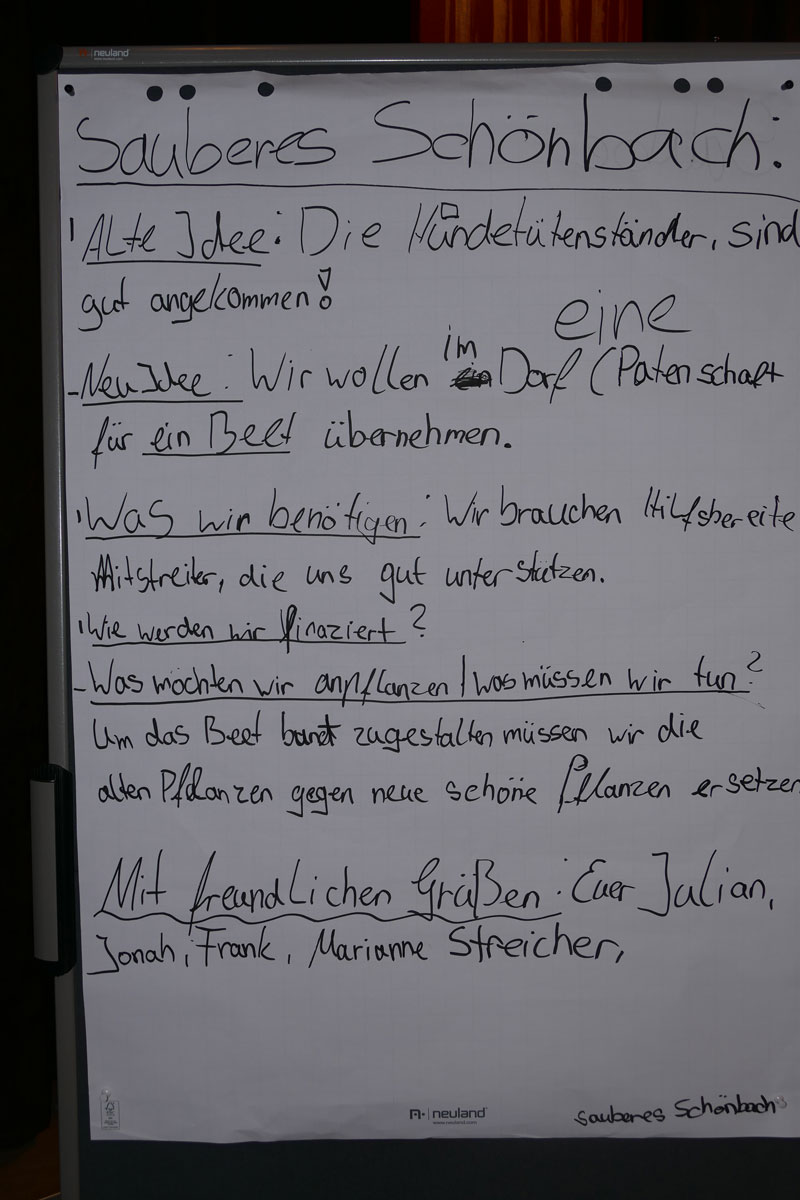 neuland
Sauberes Schönbach:
Alte Idee: Die Hundetütenständer, sind
gut angekommen!
eine
- Neu Idee: Wir wollen im Dorf (Patenschaft
für ein Beet übernehmen.
Was wir benötigen: Wir brauchen Hilfsbereite
Mitstreiter, die uns gut unterstützen.
Wie werden wir finaziert?
- Was möchten wir anpflanzen / was müssen wir tun?
Um das Beet bunt zugestalten müssen wir die
alten Pflanzen gegen neue schöne Pflanzen ersetzen
Mit freundlichen Grüßen: Euer Julian,
Jonah, Frank, Marianne Streicher,
neuland
sauberes Schönbach